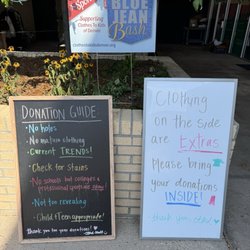 Supporting
Clothes To Kids
of Denver
BLUE
JEAN
Bash
clothestokidsdenver.org
DONATION GUIDE
• No holes
• No mature clothing
• Current TRENDS!
• Check for stains
• No schools but colleges &
professional sports are okay!
• Not too revealing
• Child & Teen appropriate!
Thank you for your donations!
Clothing
on the side
are Extras
please bring
your donations
INSIDE!
thank you